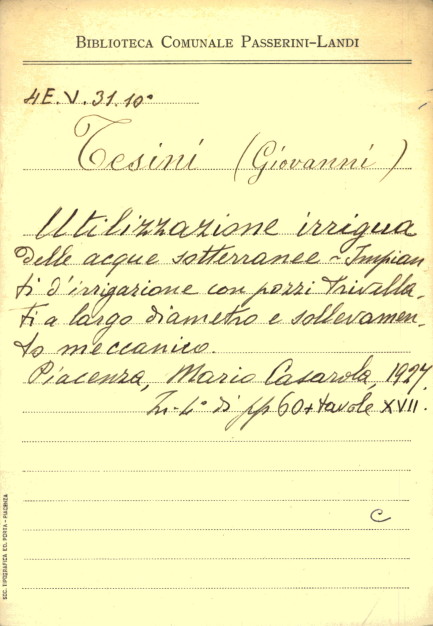 BIBLIOTECA COMUNALE PASSERINI-LANDI
4E.V.31.10°
Tesini (Giovanni)
Utilizzazione irrigua
delle acque sotterranee - Impian
ti d'irrigazione con pozzi trivella-
ti a largo diametro e sollevamen-
to meccanico.
Piacenza, Mario Casarola, 1927.
In-4° di pp 60 + tavole XVII.
C
SOC. TIPOGRAFICA ED. PORTA - PIACENZA